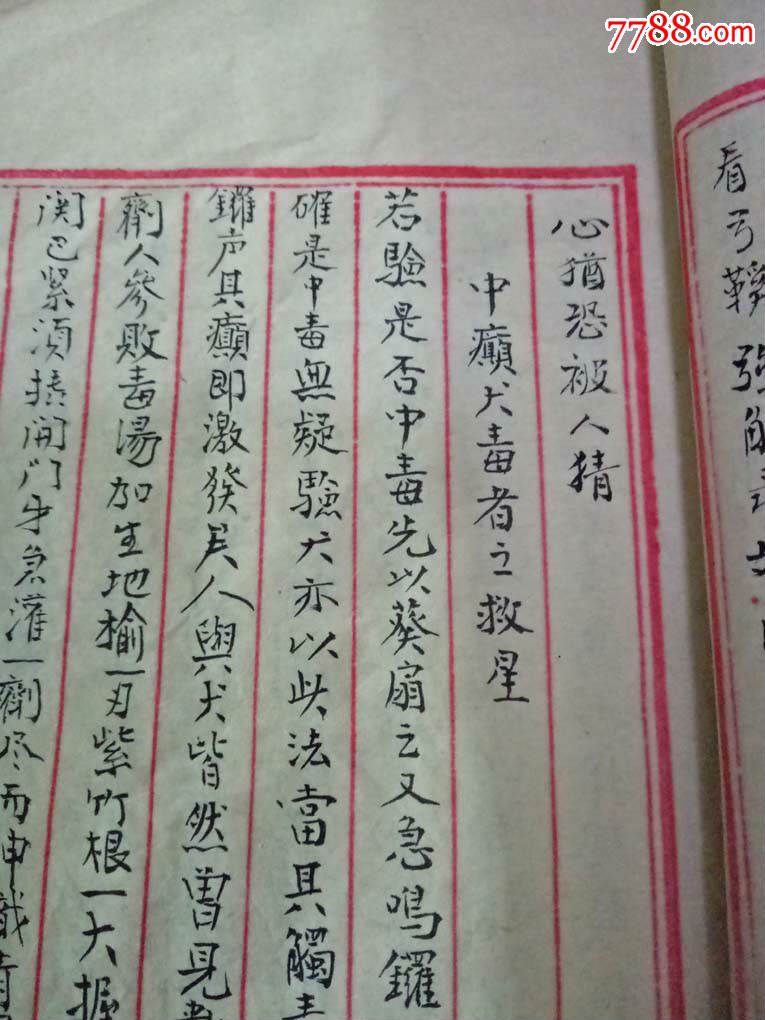 7788.com
看弓鞋
心猶恐被人猜
中癲犬毒者之救星
若驗是否中毒先以葵扇之又急鳴鑼
確是中毒無疑驗犬亦以此法當其觸
鑼声其癲即激發矣人與犬皆然曾見
劑人參敗毒湯加生地榆一刃紫竹根一大握
関已緊須 開门牙急灌一劑尽而神